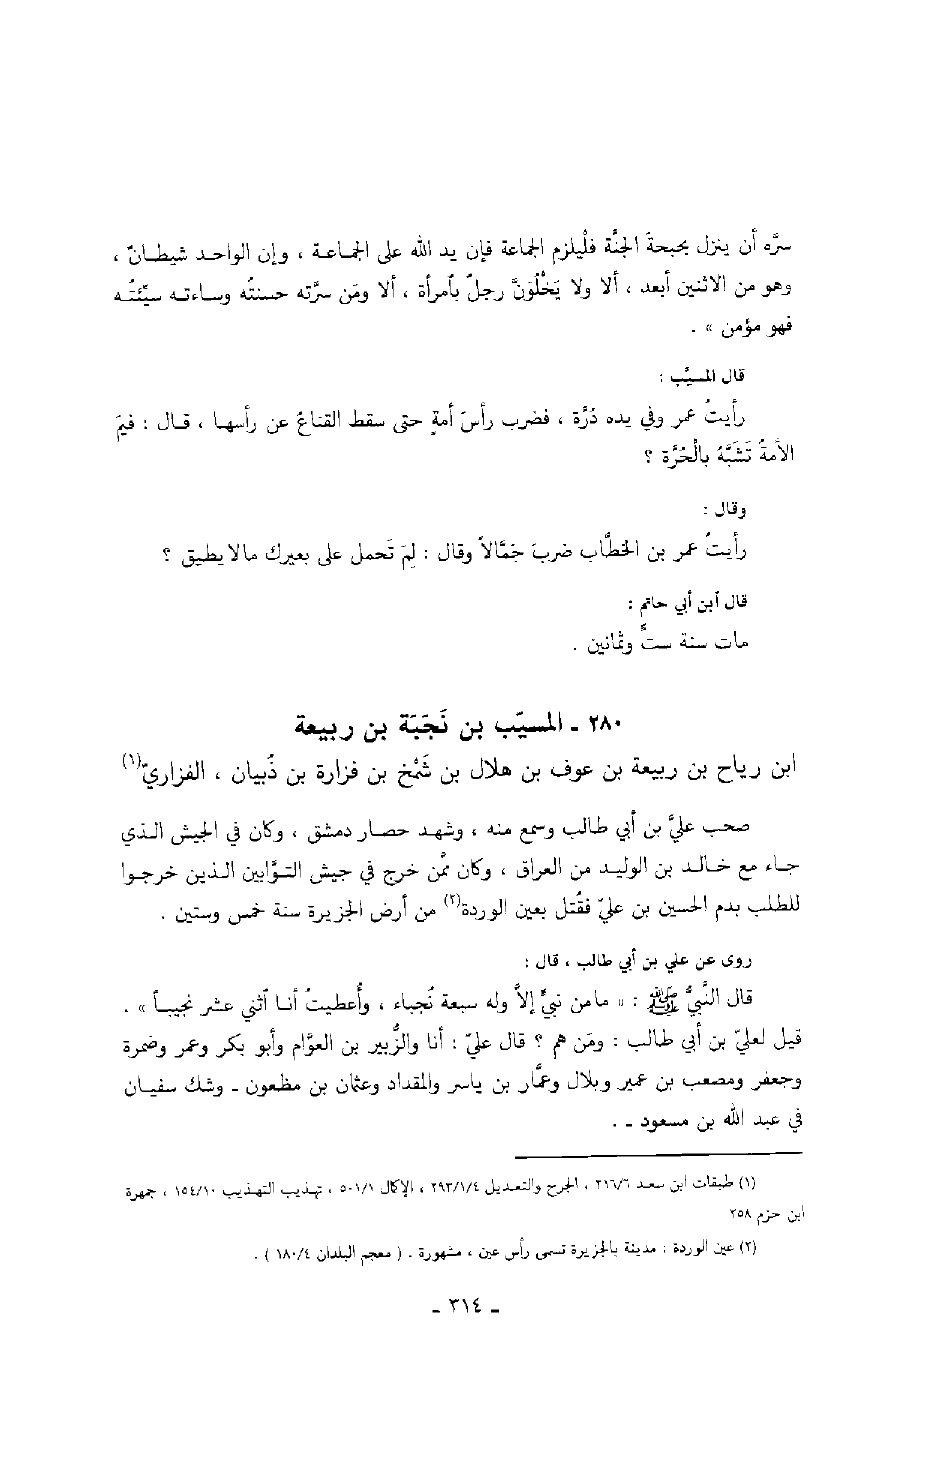 سرَّه أن ينزل بحبحةَ الجنَّة فلْيلزم الجماعة فإن يد الله على الجماعة ، وإن الواحد شيطانٌ ،
وهو من الاثنين أبعد ، ألا ولا يَخْلُوَنَّ رجلٌ بأمرأة ، ألا ومَن سرَّته حسنتُه وساءته سيِّئتُه
فهو مؤمن » .
قال المسيَّب :
رأيتُ عمر وفي يده دُرَّة ، فضرب رأسَ أمةٍ حتى سقط القناعُ عن رأسها ، قال : فيمَ
الأمةُ تَشَبَّهُ بالْحُرَّة ؟
وقال :
رأيتُ عمر بن الخطَّاب ضربَ جَمَّالاً وقال : لِمَ تَحمل على بعيرك مالا يطيق ؟
قال ٱبن أبي حاتم :
مات سنة ستٍّ وثمانين .
٢٨٠ - المسيّب بن نَجَبَة بن ربيعة
ابن رياح بن ربيعة بن عوف بن هلال بن شَمْخ بن فزارة بن ذُبيان ، الفزاريّ(١)
صحب عليَّ بن أبي طالب وسمع منه ، وشهد حصار دمشق ، وكان في الجيش الذي
جاء مع خالد بن الوليد من العراق ، وكان ممَّن خرج في جيش التوَّابين الذين خرجوا
للطلب بدم الحسين بن عليّ فقُتل بعين الوردة(٢) من أرض الجزيرة سنة خمس وستين .
روى عن علي بن أبي طالب ، قال :
قال النَّبيُّ ﷺ : « مامن نبيٍّ إلاَّ وله سبعة نُجباء ، وأُعطيتُ أنا ٱثني عشر نجيباً » .
قيل لعليّ بن أبي طالب : ومَن هم ؟ قال عليّ : أنا والزُّبير بن العوَّام وأبو بكر وعمر وضمرة
وجعفر ومصعب بن عمير وبلال وعمَّار بن ياسر والمقداد وعثمان بن مظعون - وشك سفيان
في عبد الله بن مسعود - .
(١) طبقات ابن سعد ٢١٦/٦ ، الجرح والتعديل ٢٩٣/١/٤ ، الإكمال ٥٠١/١ ، تهذيب التهذيب ١٥٤/١٠ ، جمهرة
ابن حزم ٢٥٨
(٢) عين الوردة : مدينة بالجزيرة تسمى رأس عين ، مشهورة . ( معجم البلدان ١٨٠/٤ ) .
- ٣١٤ -